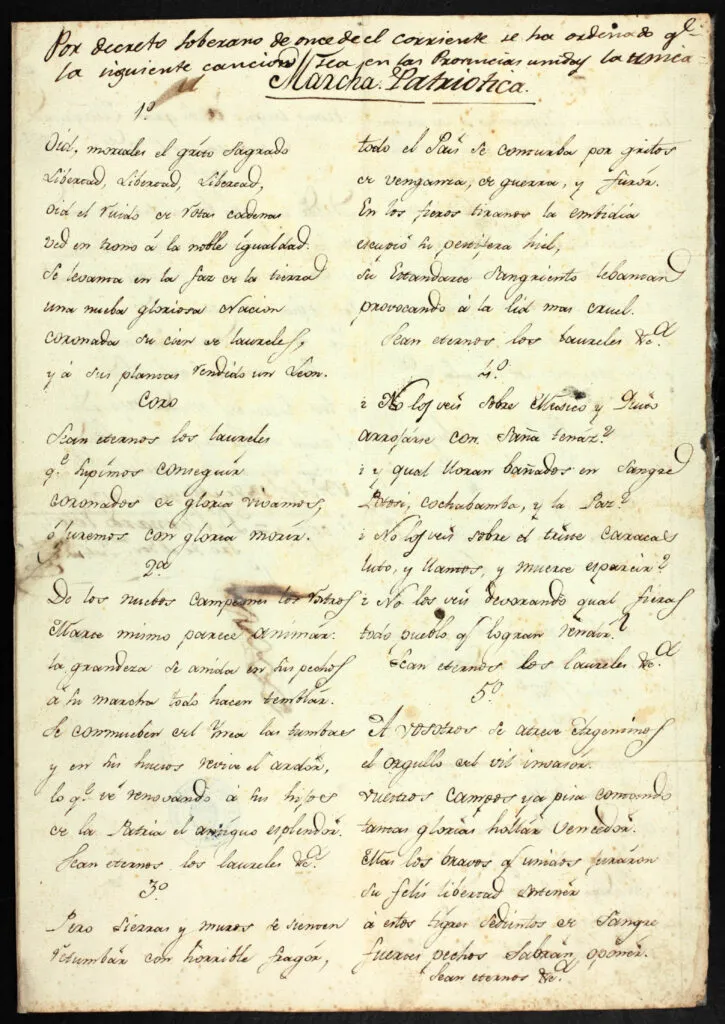 Por decreto soberano de once de el corriente se ha ordenado qe.
la siguiente cancion sea en las Provincias unidas la unica
Marcha Patriotica.
1º
Oid, mortales el grito Sagrado
Libertad, Libertad, Libertad,
Oid el ruido de rotas cadenas
ved en trono á la noble igualdad.
Se levanta en la faz de la tierra
una nueba gloriosa Nacion
coronada su cien de laureles,
y á sus plantas rendido un Leon.
CORO
Sean eternos los laureles
q.e supimos conseguir
coronados de gloria vivamos,
ó juremos con gloria morir.
2º
De los nuebos campeones los rostros
Marte mismo parece animar.
la grandeza se anida en sus pechos
á su marcha todo hacen temblar.
Se conmueben del Ynca las tumbas
y en sus huesos revive el ardor,
lo q.e vé renovando á sus hijos
de la Patria el antiguo esplendor.
Sean eternos los laureles &c.a
3º
Pero sierras y muros se sienten
retumbar con horrible fragor,
todo el País se conturba por gritos
de venganza, de guerra, y furor.
En los fieros tiranos la embidia
escupió su pestifera hiel,
su Estandarte Sangriento lebantan
provocando á la lid mas cruel.
Sean eternos los laureles &c.a
4º
¿ No los veis sobre Mexico y Quito
arrojarse con Saña tenáz?
¿ y qual lloran bañados en Sangre
Potosi, cochabamba, y la Paz?
¿ No los veis sobre el triste caracas
luto, y llantos, y muerte esparcir?
¿ No los veis devorando qual fieras
todo pueblo q.e logran rendir?
Sean eternos los laureles &c.a
5º
A vosotros se atreve Argentinos
el orgullo del vil invasor.
vuestros campos ya pisa contando
tantas glorias hollar vencedor.
Mas los bravos q.e unidos juraron
su feliz libertad sostener
á estos tigres sedientos de Sangre
fuertes pechos Sabrán oponer.
Sean eternos &c.a